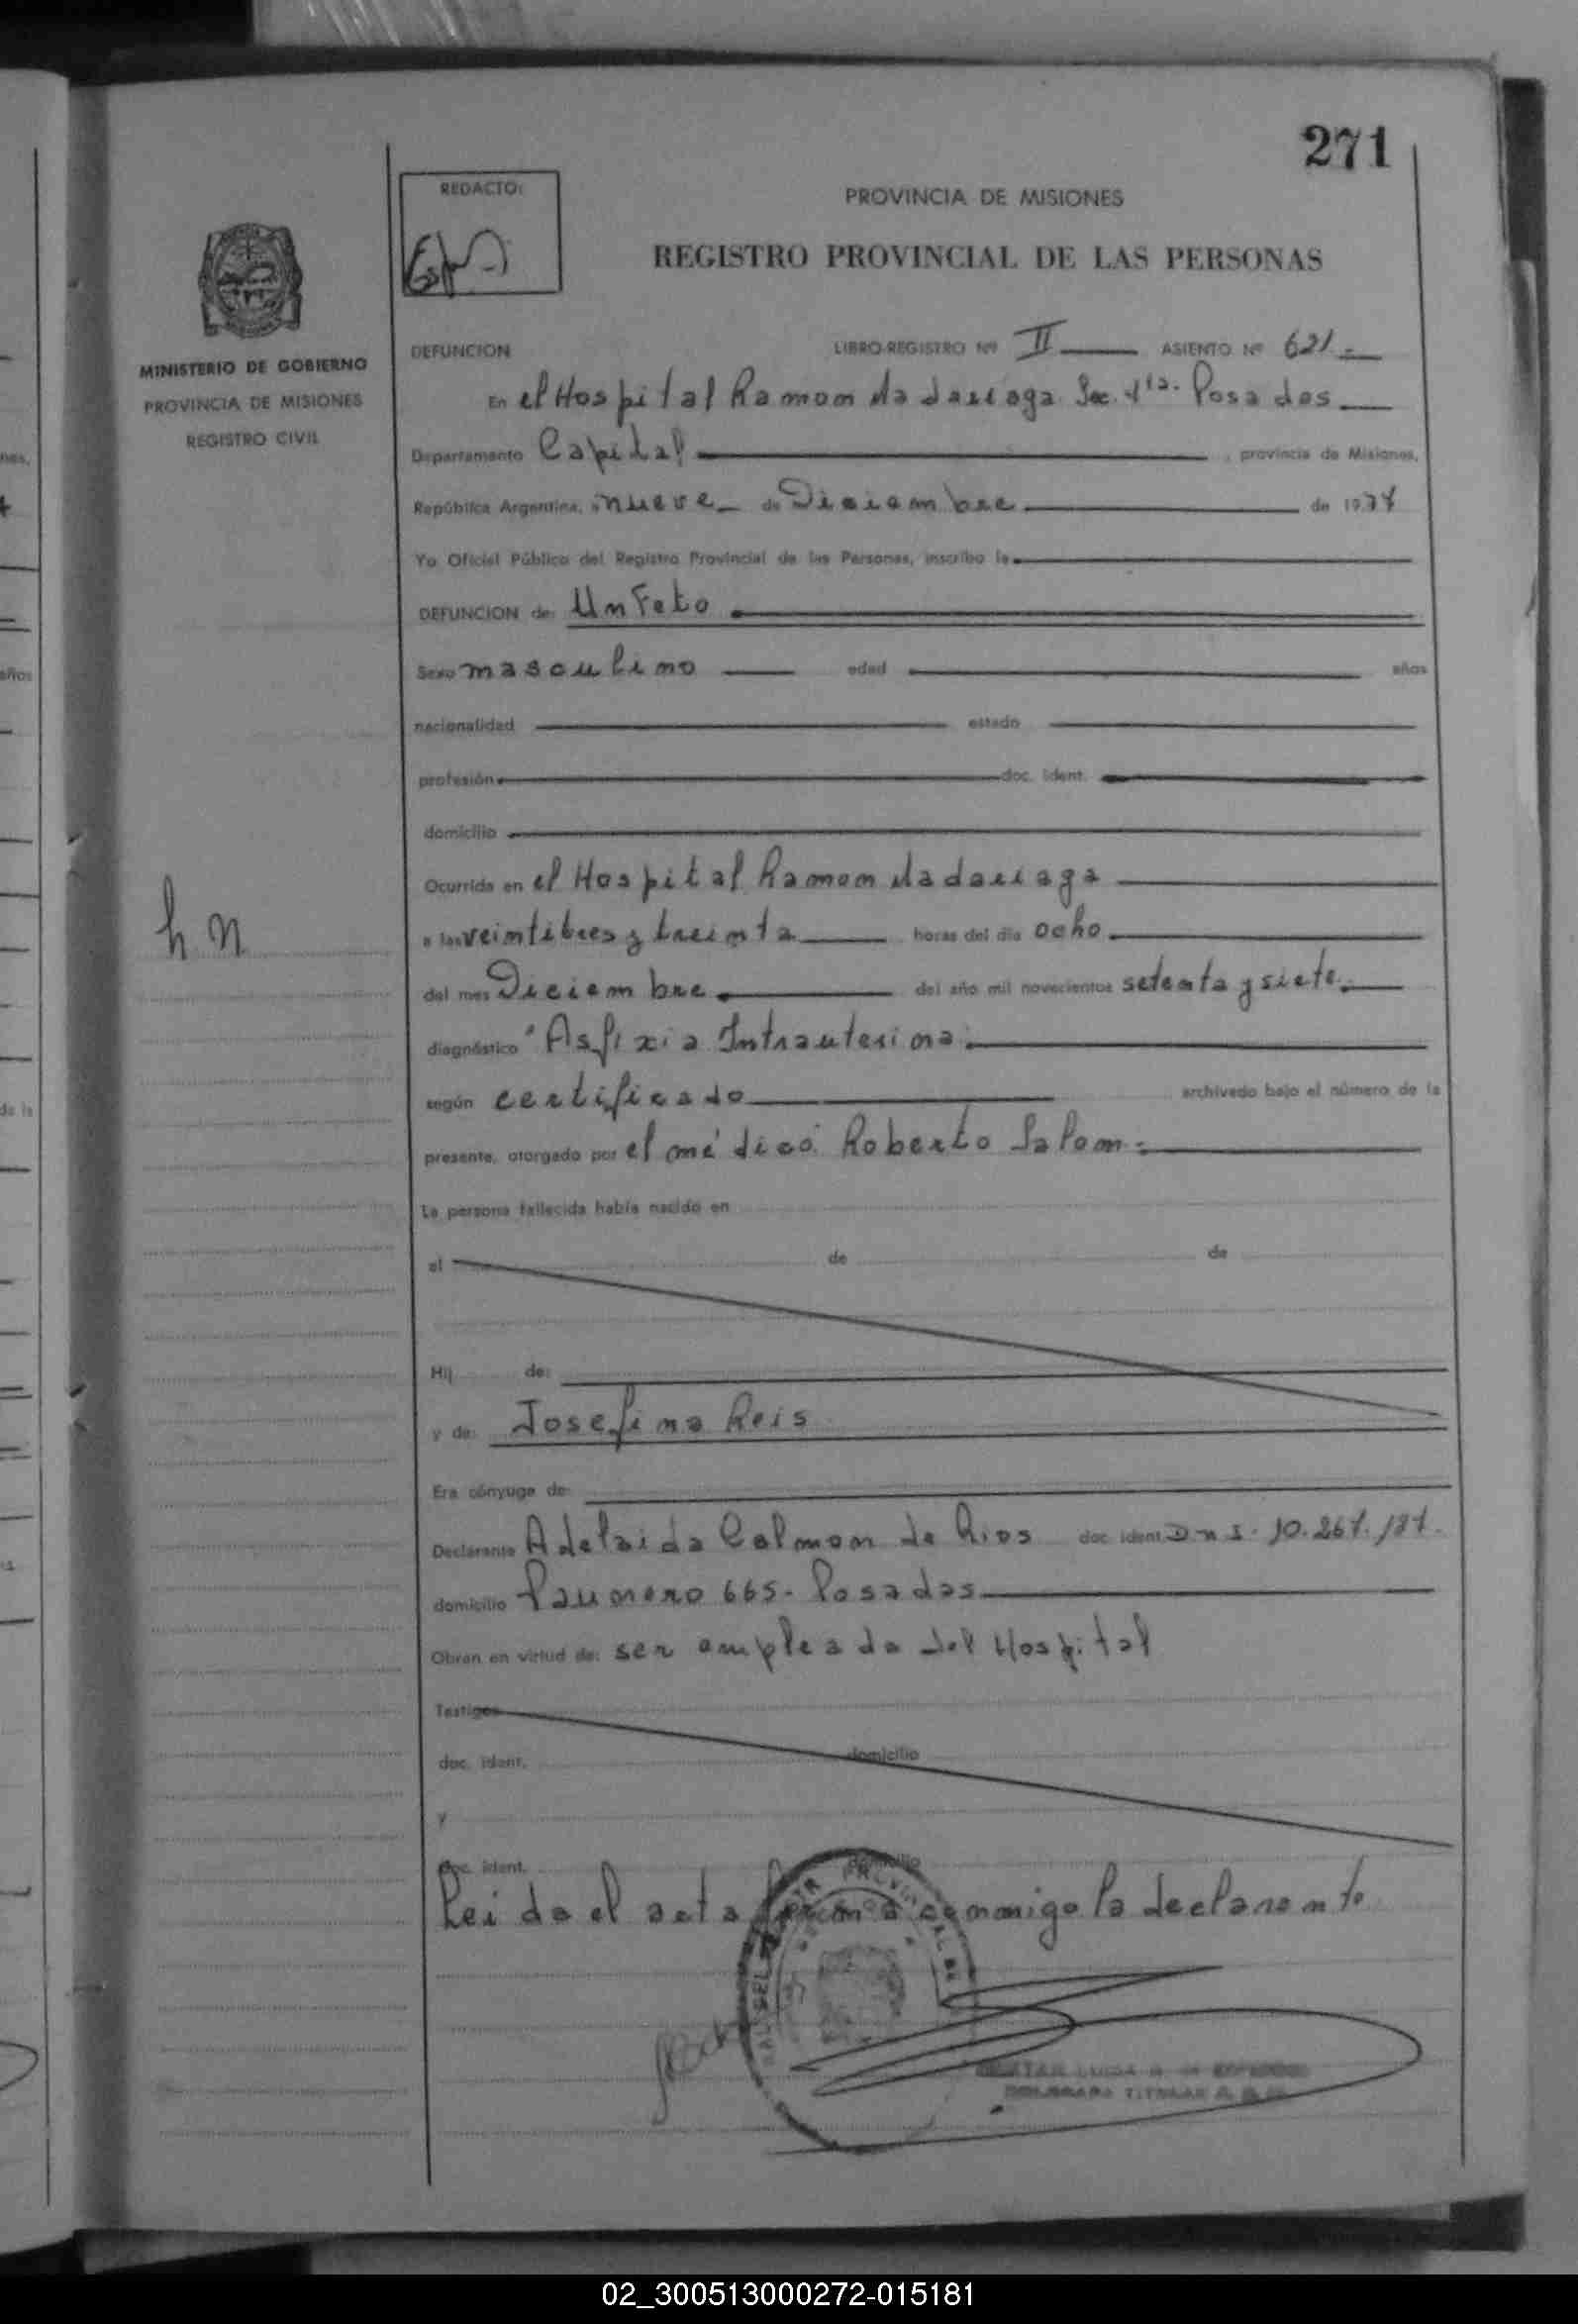 271
REDACTO:
PROVINCIA DE MISIONES
REGISTRO PROVINCIAL DE LAS PERSONAS
MINISTERIO DE GOBIERNO
PROVINCIA DE MISIONES
REGISTRO CIVIL
DEFUNCION LIBRO-REGISTRO Nº II ASIENTO Nº 621.-
En el Hospital Ramon Madariaga Sec. 4ta. Posadas
Departamento Capital, provincia de Misiones,
República Argentina, a nueve de Diciembre de 1977
Yo Oficial Público del Registro Provincial de las Personas, inscribo la
DEFUNCION de: Un Feto
Sexo masculino edad años
nacionalidad estado
profesión doc. ident.
domicilio
Ocurrida en el Hospital Ramon Madariaga
h.n
a las veintitres y treinta horas del día ocho
del mes Diciembre del año mil novecientos setenta y siete.
diagnóstico "Asfixia Intrauterina.
según certificado archivado bajo el número de la
presente, otorgado por el médico Roberto Salom.
La persona fallecida había nacido en
el de de
Hij de:
y de: Josefina Reis
Era cónyuge de:
Declarante Adelaida Colmon de Rios doc. ident. DNI. 10.267.187.
domicilio Paunero 665- Posadas
Obran en virtud de: ser empleada del Hospital
Testigos
doc. ident. domicilio
y
doc. ident. domicilio
Leida el acta firma conmigo la declarante
02_300513000272-015181